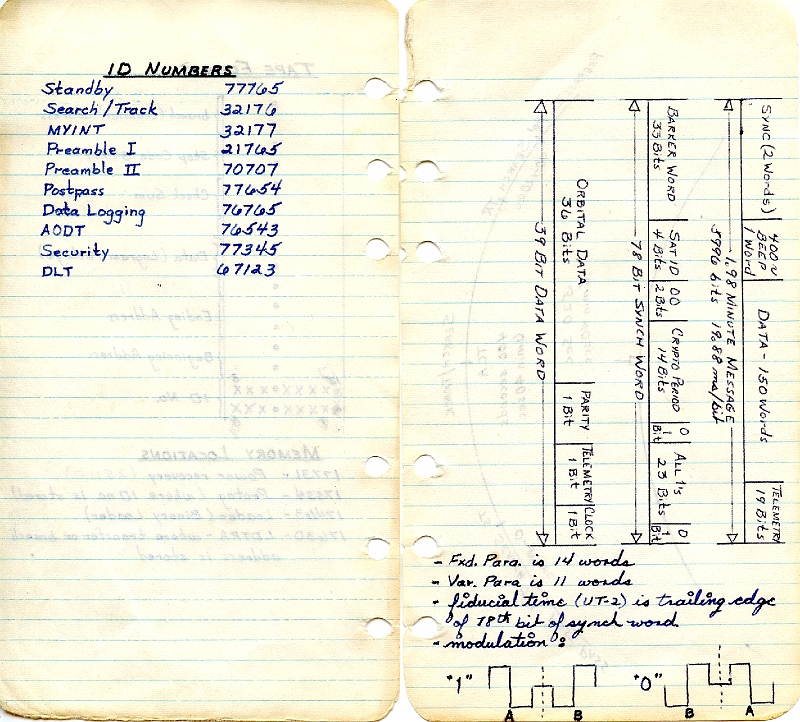 ID NUMBERS
Standby 77765
Search/Track 32176
MYINT 32177
Preamble I 21765
Preamble II 70707
Postpass 77654
Data Logging 76765
AODT 76543
Security 77345
DLT 67123
SYNC (2 Words)
400~ BEEP 1 Word
DATA - 150 Words
TELEMETRY 19 Bits
1.98 MINUTE MESSAGE
5996 bits 19.88 ms/bit
BARKER WORD 33 Bits
SAT ID 4 Bits
00 2 Bits
CRYPTO PERIOD 14 Bits
0 1 Bit
ALL 1's 23 Bits
0 1 Bit
78 BIT SYNCH WORD
ORBITAL DATA 36 Bits
PARITY 1 Bit
TELEMETRY 1 Bit
CLOCK 1 Bit
39 BIT DATA WORD
- Fxd. Para. is 14 words
- Var. Para is 11 words
- fiducial time (UT-2) is trailing edge
of 78th bit of synch word.
- modulation:
"1" "0"
A B B A
MEMORY LOCATIONS